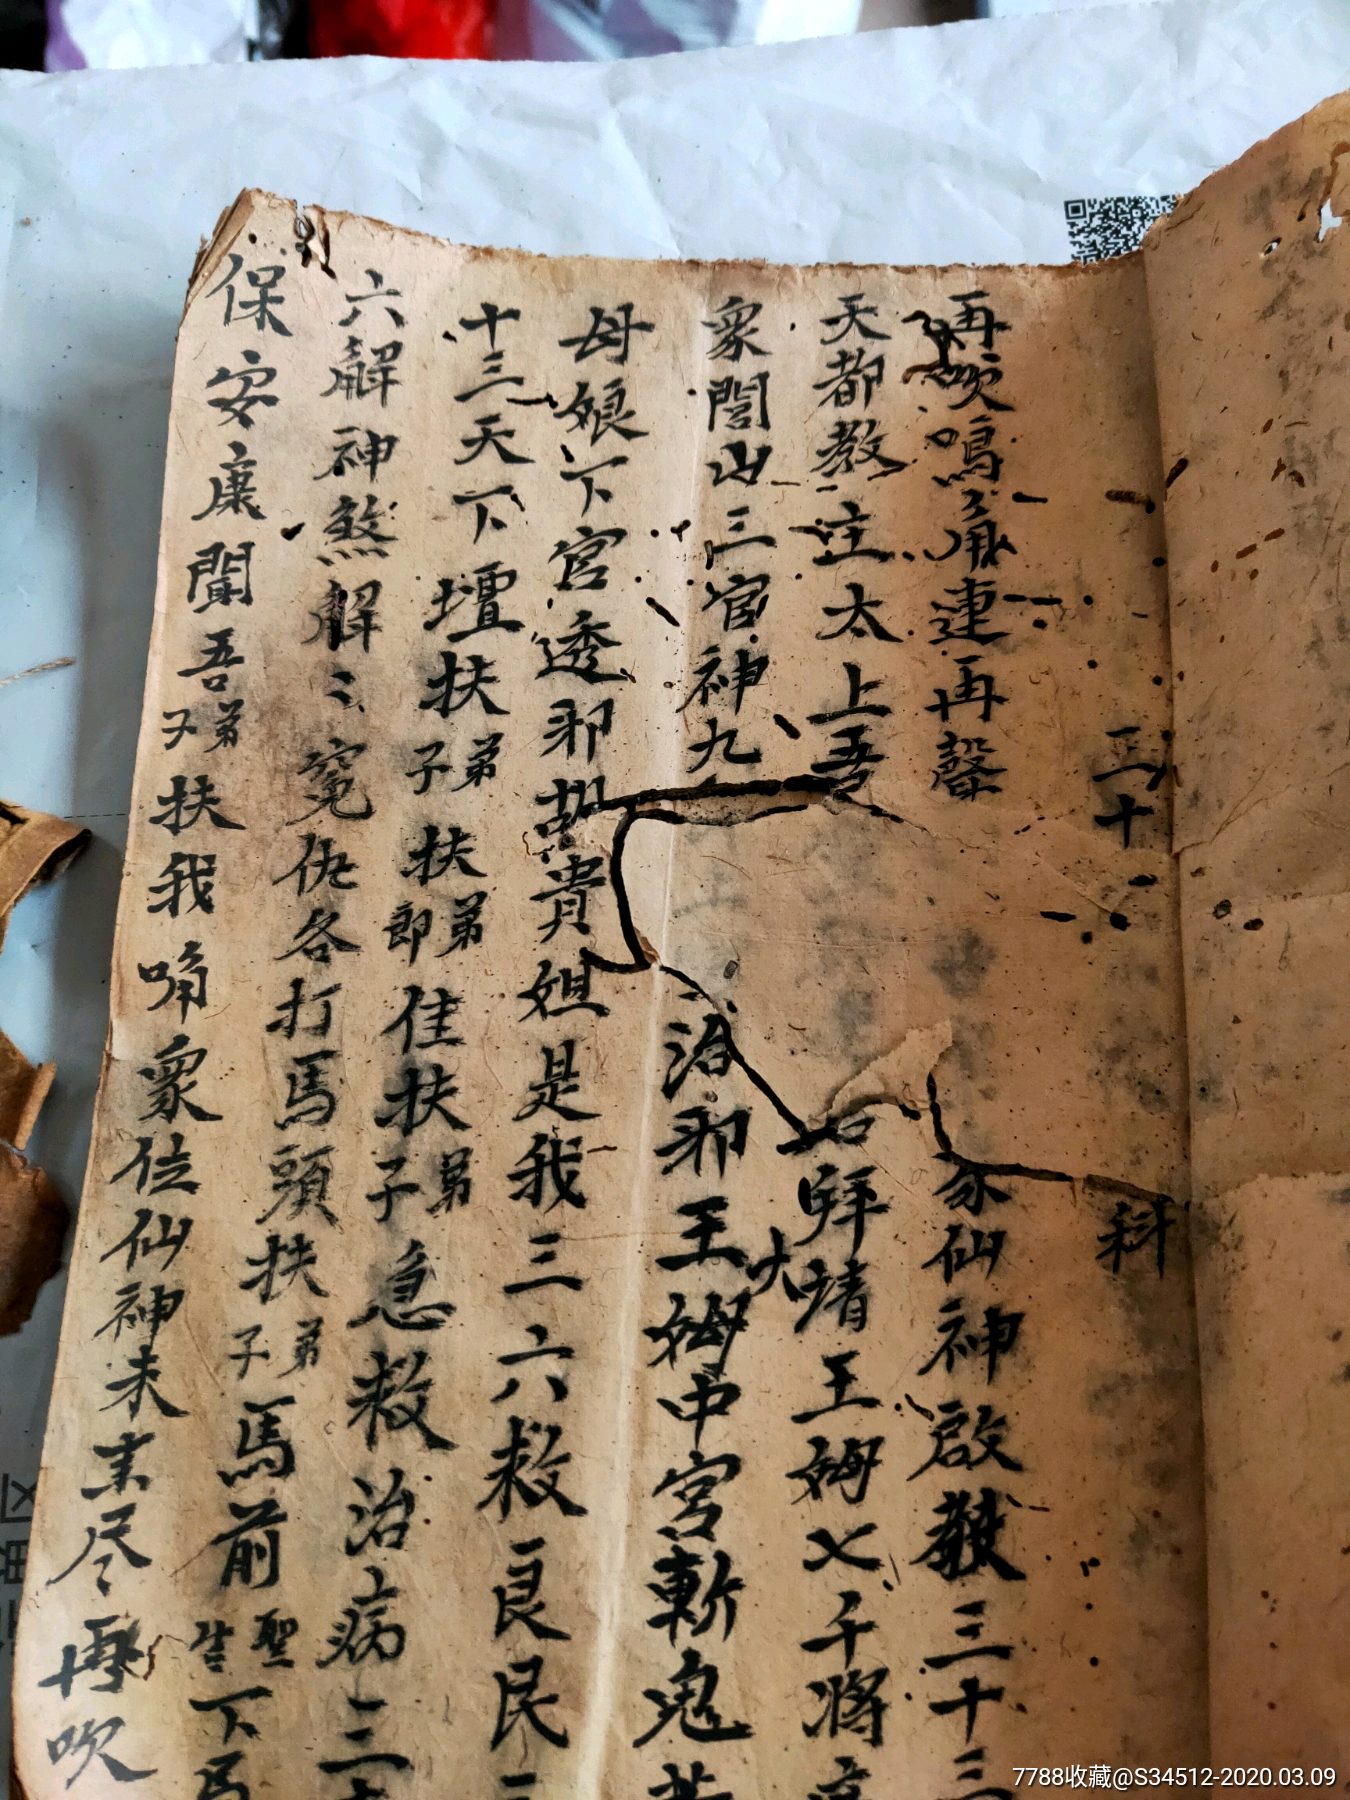 三十 科
再吹鳴角連再聲 家仙神啟教三十三
天都教主太上吾 拜請王姆七千將
大
衆閭山三官神九 治邪王姆中宮斬鬼
母娘下宮透邪 貴姐是我三六救良民
十三天下壇扶弟子扶弟郎佳扶弟子急救治病三
六解神煞解〻冤仇各打馬頭扶弟子馬前聖生下馬
保安康聞吾弟子扶我角衆位仙神未尽再吹
7788收藏@S34512-2020.03.09